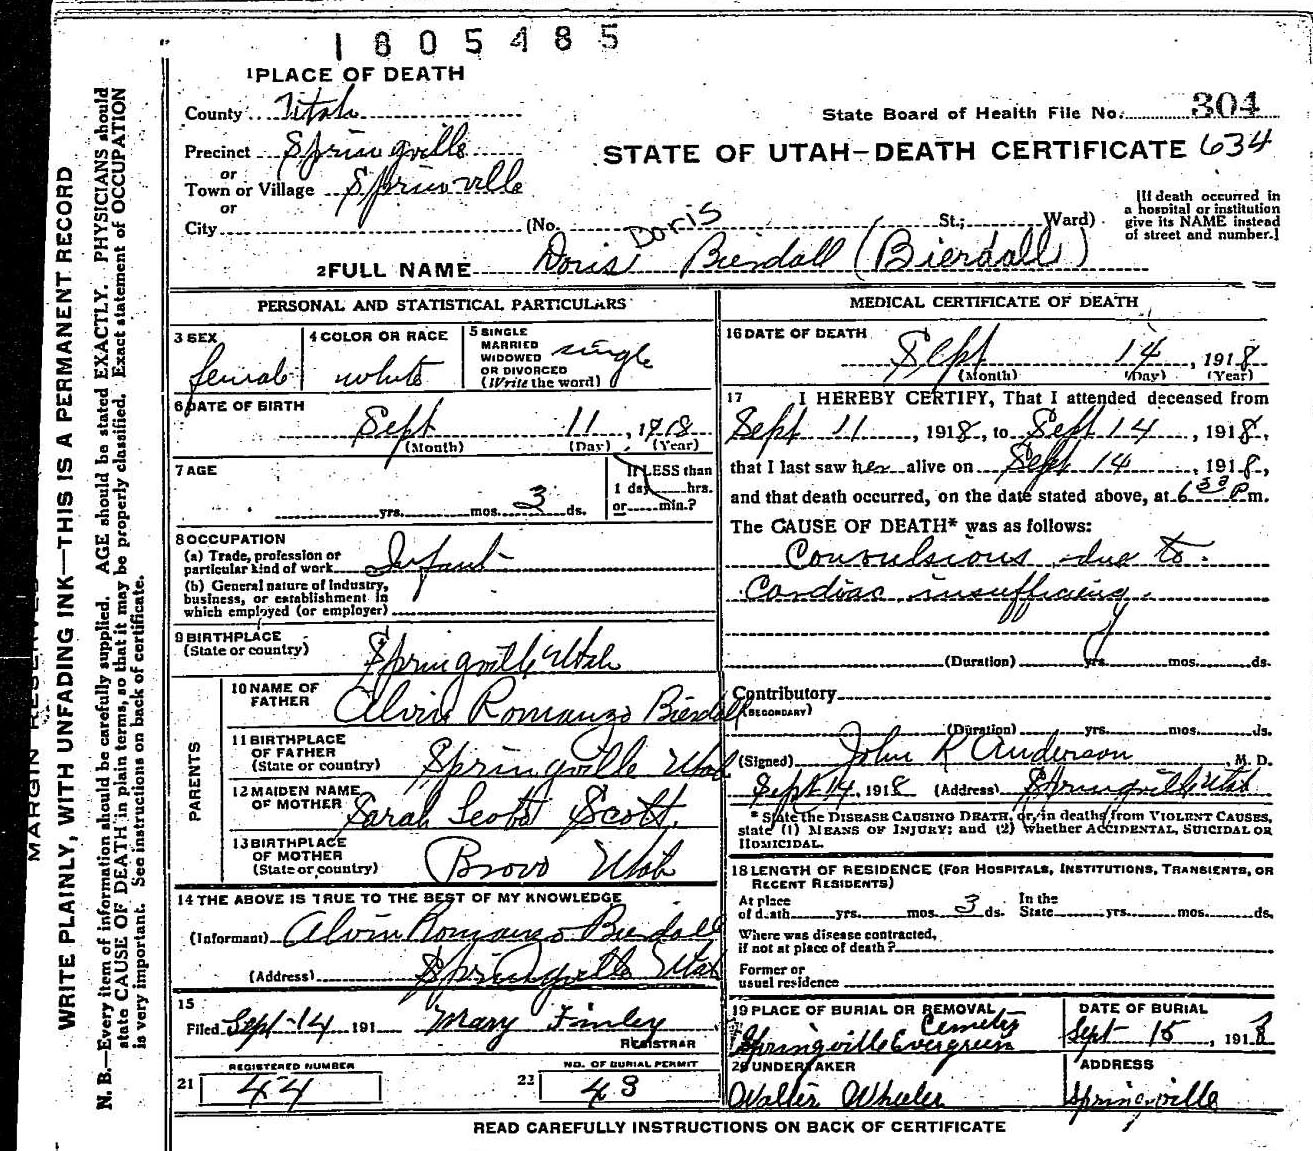 1805485
1 PLACE OF DEATH
County Utah
State Board of Health File No. 304
Precinct Springville
STATE OF UTAH—DEATH CERTIFICATE 634
or
Town or Village Sprinville
or
City (No. St.; Ward)
[If death occurred in a hospital or institution give its NAME instead of street and number.]
Doris
2 FULL NAME Doris Bierdall (Bierdall)
PERSONAL AND STATISTICAL PARTICULARS
3 SEX female
4 COLOR OR RACE white
5 SINGLE MARRIED WIDOWED OR DIVORCED (Write the word) single
6 DATE OF BIRTH
Sept 11, 1918
(Month) (Day) (Year)
7 AGE
yrs. mos. 3 ds.
If LESS than 1 day hrs. or min.?
8 OCCUPATION
(a) Trade, profession or particular kind of work Infant
(b) General nature of Industry, business, or establishment in which employed (or employer)
9 BIRTHPLACE (State or country) Springville Utah
PARENTS
10 NAME OF FATHER Alvin Romanzo Bierdall
11 BIRTHPLACE OF FATHER (State or country) Springville Utah
12 MAIDEN NAME OF MOTHER Sarah Scott Scott
13 BIRTHPLACE OF MOTHER (State or country) Provo Utah
14 THE ABOVE IS TRUE TO THE BEST OF MY KNOWLEDGE
(Informant) Alvin Romanzo Bierdall
(Address) Springville Utah
15
Filed Sept 14 191 Mary Finley
REGISTRAR
REGISTERED NUMBER
21 44
NO. OF BURIAL PERMIT
22 43
MEDICAL CERTIFICATE OF DEATH
16 DATE OF DEATH
Sept 14, 1918
(Month) (Day) (Year)
17 I HEREBY CERTIFY, That I attended deceased from
Sept 11, 1918, to Sept 14, 1918,
that I last saw her alive on Sept 14, 1918,
and that death occurred, on the date stated above, at 6 30 P m.
The CAUSE OF DEATH* was as follows:
Convulsions due to
Cardiac insufficiency.
(Duration) yrs. mos. ds.
Contributory
(SECONDARY)
(Duration) yrs. mos. ds.
(Signed) John R Anderson M. D.
Sept 14, 1918 (Address) Springville Utah
* State the DISEASE CAUSING DEATH, or, in deaths from VIOLENT CAUSES,
state (1) MEANS OF INJURY; and (2) whether ACCIDENTAL, SUICIDAL OR
HOMICIDAL.
18 LENGTH OF RESIDENCE (FOR HOSPITALS, INSTITUTIONS, TRANSIENTS, OR
RECENT RESIDENTS)
At place of death yrs. mos. 3 ds. In the State yrs. mos. ds.
Where was disease contracted,
if not at place of death?
Former or
usual residence
19 PLACE OF BURIAL OR REMOVAL
Springville Evergreen Cemetery
DATE OF BURIAL
Sept 15, 1918
20 UNDERTAKER
Walter Wheeler
ADDRESS
Springville
READ CAREFULLY INSTRUCTIONS ON BACK OF CERTIFICATE
MARGIN RESERVED
WRITE PLAINLY, WITH UNFADING INK—THIS IS A PERMANENT RECORD
N. B.—Every item of information should be carefully supplied. AGE should be stated EXACTLY. PHYSICIANS should
state CAUSE OF DEATH in plain terms, so that it may be properly classified. Exact statement of OCCUPATION
is very important. See instructions on back of certificate.